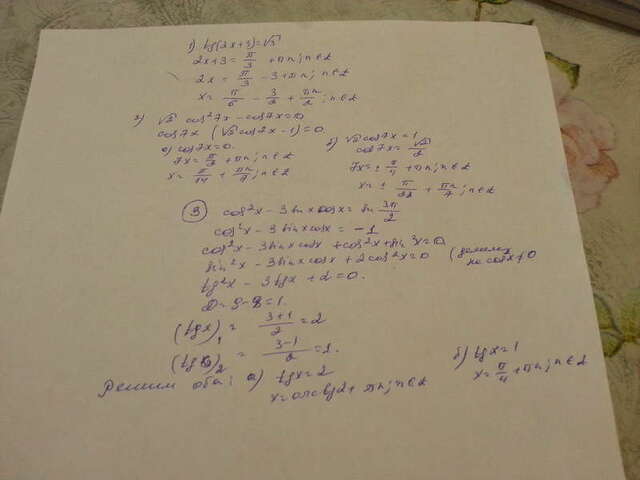 1) tg(2x+3)=√3
2x+3 = π/3 + πn; n∈Z
2x = π/3 - 3 + πn; n∈Z
x = π/6 - 3/2 + πn/2; n∈Z
2) √2 cos²7x - cos7x = 0
cos7x (√2 cos7x - 1) = 0
а) cos7x = 0.
7x = π/2 + πn; n∈Z
x = π/14 + πn/7; n∈Z
б) √2 cos7x = 1
cos7x = √2/2
7x = ± π/4 + πn; n∈Z
x = ± π/28 + πn/7; n∈Z
3) cos²x - 3sinx cosx = sin 3π/2
cos²x - 3sinx cosx = -1
cos²x - 3sinx cosx + cos²x + sin²x = 0
sin²x - 3sinx cosx + 2cos²x = 0 (делим на cos²x≠0
tg²x - 3tgx + 2 = 0.
D = 9 - 8 = 1.
(tgx)₁ = (3+1)/2 = 2
(tgx)₂ = (3-1)/2 = 1.
Решим оба: а) tgx = 2
x = arctg2 + πn; n∈Z
б) tgx = 1
x = π/4 + πn; n∈Z